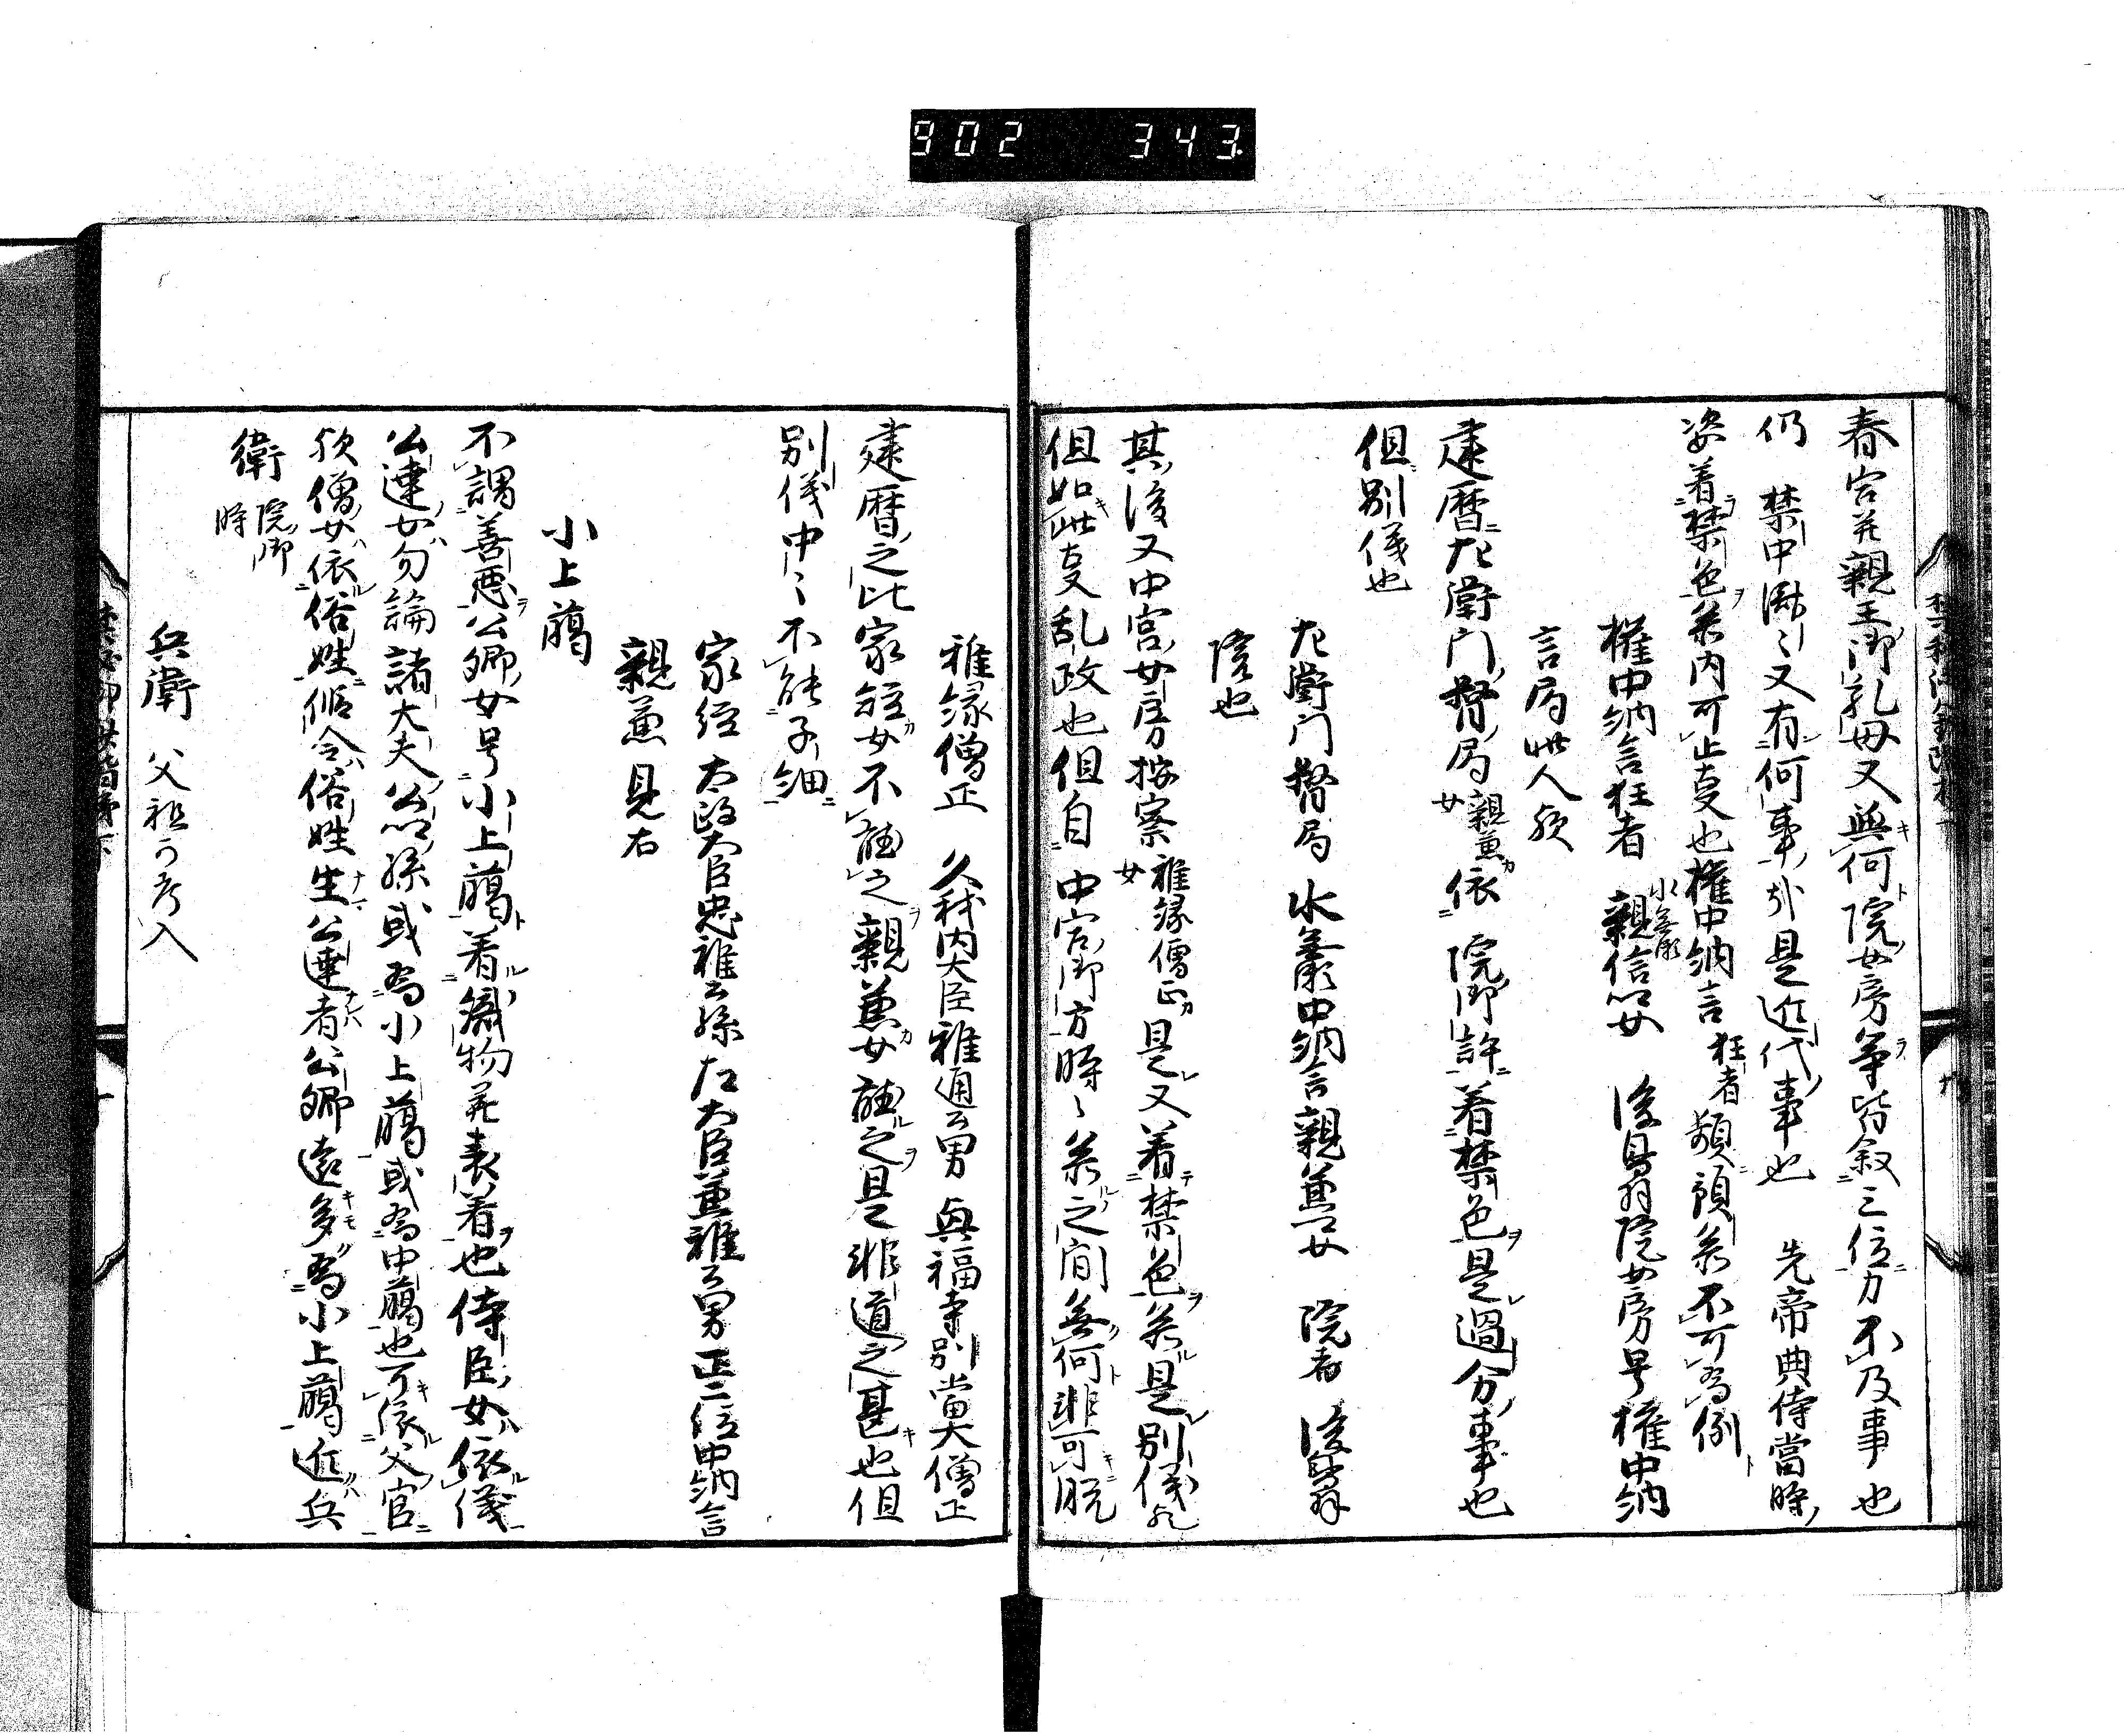 902 343
春宮并親王御乳母又無何院女房等皆叙三位力不及事也
仍禁中濫〻又有何事引是近代事也 先帝典侍當時
姿着禁色参内可止㕝也権中納言狂者頻預参不可為例
権中納言狂者 水無瀬親信卿女 後鳥羽院女房号権中納
言局此人歟
建暦左衛門督局親兼女依 院御許着禁色是過分事也
但別儀也
左衛門督局 水無瀬中納言親兼卿女 院者 後鳥羽
院也
其後又中宮女房按察雅縁僧正女是又着禁色参是別儀也
但如此㕝乱政也但自 中宮御方時〻参之間無何非可脱
雅縁僧正 久我内大臣雅通公男 興福寺別當大僧正
建暦之比家経女不聴之親兼女聴之是非道之甚也但
別儀中〻不能子細
家経 太政大臣忠雅公孫左大臣兼雅公男正二位中納言
親兼 見右
小上臈
不謂善悪公卿女号小上臈着織物并表着也侍臣女依儀
公達女勿論諸大夫公卿孫或為小上臈或為中臈也可依父官
歟僧女依俗姓假令俗姓生公達者公卿遠多為小上臈近兵
衛 院御時
兵衛 父祖可考入